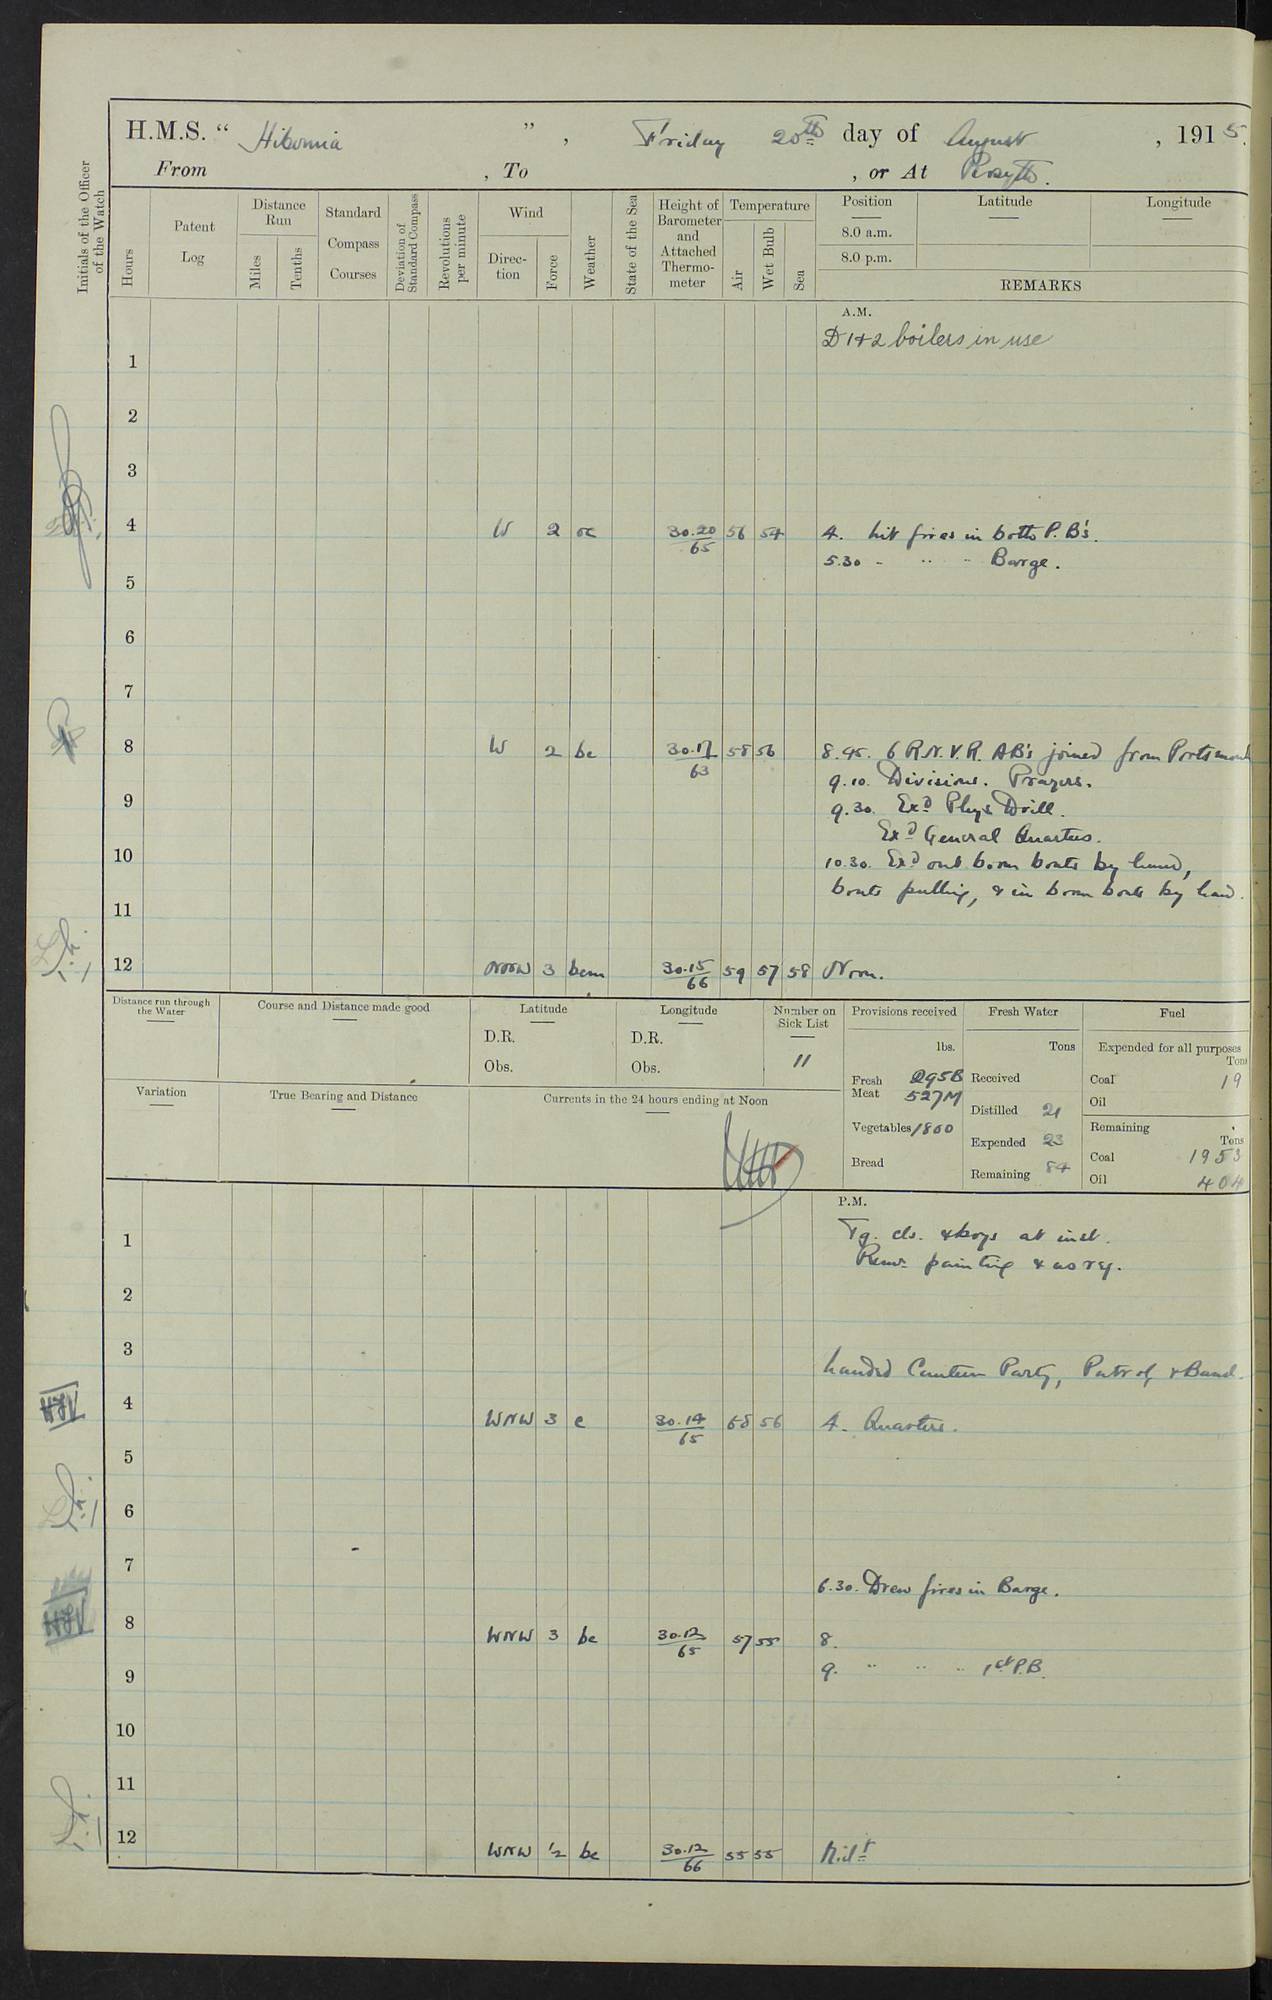 H.M.S. “ Hibernia ” , Friday 20th day of August , 1915.
From , To , or At Rosyth.
Initials of the Officer of the Watch
Hours
Patent Log
Distance Run
Miles
Tenths
Standard Compass Courses
Deviation of Standard Compass
Revolutions per minute
Wind
Direction
Force
Weather
State of the Sea
Height of Barometer and Attached Thermometer
Temperature
Air
Wet Bulb
Sea
Position Latitude Longitude
8.0 a.m.
8.0 p.m.
REMARKS
A.M.
D 1+2 boilers in use
1
2
3
4 W 2 oc 30.20/65 56 54 4. lit fires in both P.B's.
5.30 - " - Barge.
5
6
7
8 W 2 bc 30.17/63 58 56 8.45. 6 R.N.V.R. AB's joined from Portsmouth
9.10. Divisions. Prayers.
9 9.30. Exd Phys Drill.
Exd General Quarters.
10 10.30. Exd out boom boats by hand,
boats pulling, & in boom boats by hand.
11
12 NNW 3 bcm 30.15/66 59 57 58 Noon.
Distance run through the Water
Course and Distance made good
Latitude
D.R.
Obs.
Longitude
D.R.
Obs.
Number on Sick List
11
Provisions received
lbs.
Fresh Meat 295B
527M
Vegetables 1800
Bread
Fresh Water
Tons
Received
Distilled 21
Expended 23
Remaining 84
Fuel
Expended for all purposes
Tons
Coal 19
Oil
Remaining
Tons
Coal 1953
Oil 404
Variation
True Bearing and Distance
Currents in the 24 hours ending at Noon
P.M.
1 Tg. cls. & boys at inst.
painting & as rq.
2
3
landed Canteen Party, Patrol, & Band.
4 WNW 3 c 30.14/65 58 56 4. Quarters.
5
6
7
6.30. Drew fires in Barge.
8 WNW 3 bc 30.12/65 57 55 8.
9 9. " " " 1st P.B.
10
11
12 WNW ½ bc 30.12/66 55 55 Midt